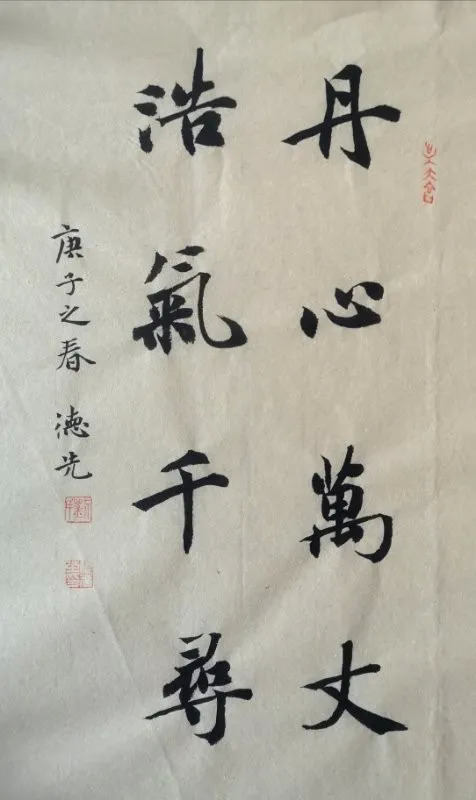 丹心萬丈
浩氣千尋
庚子之春 德先